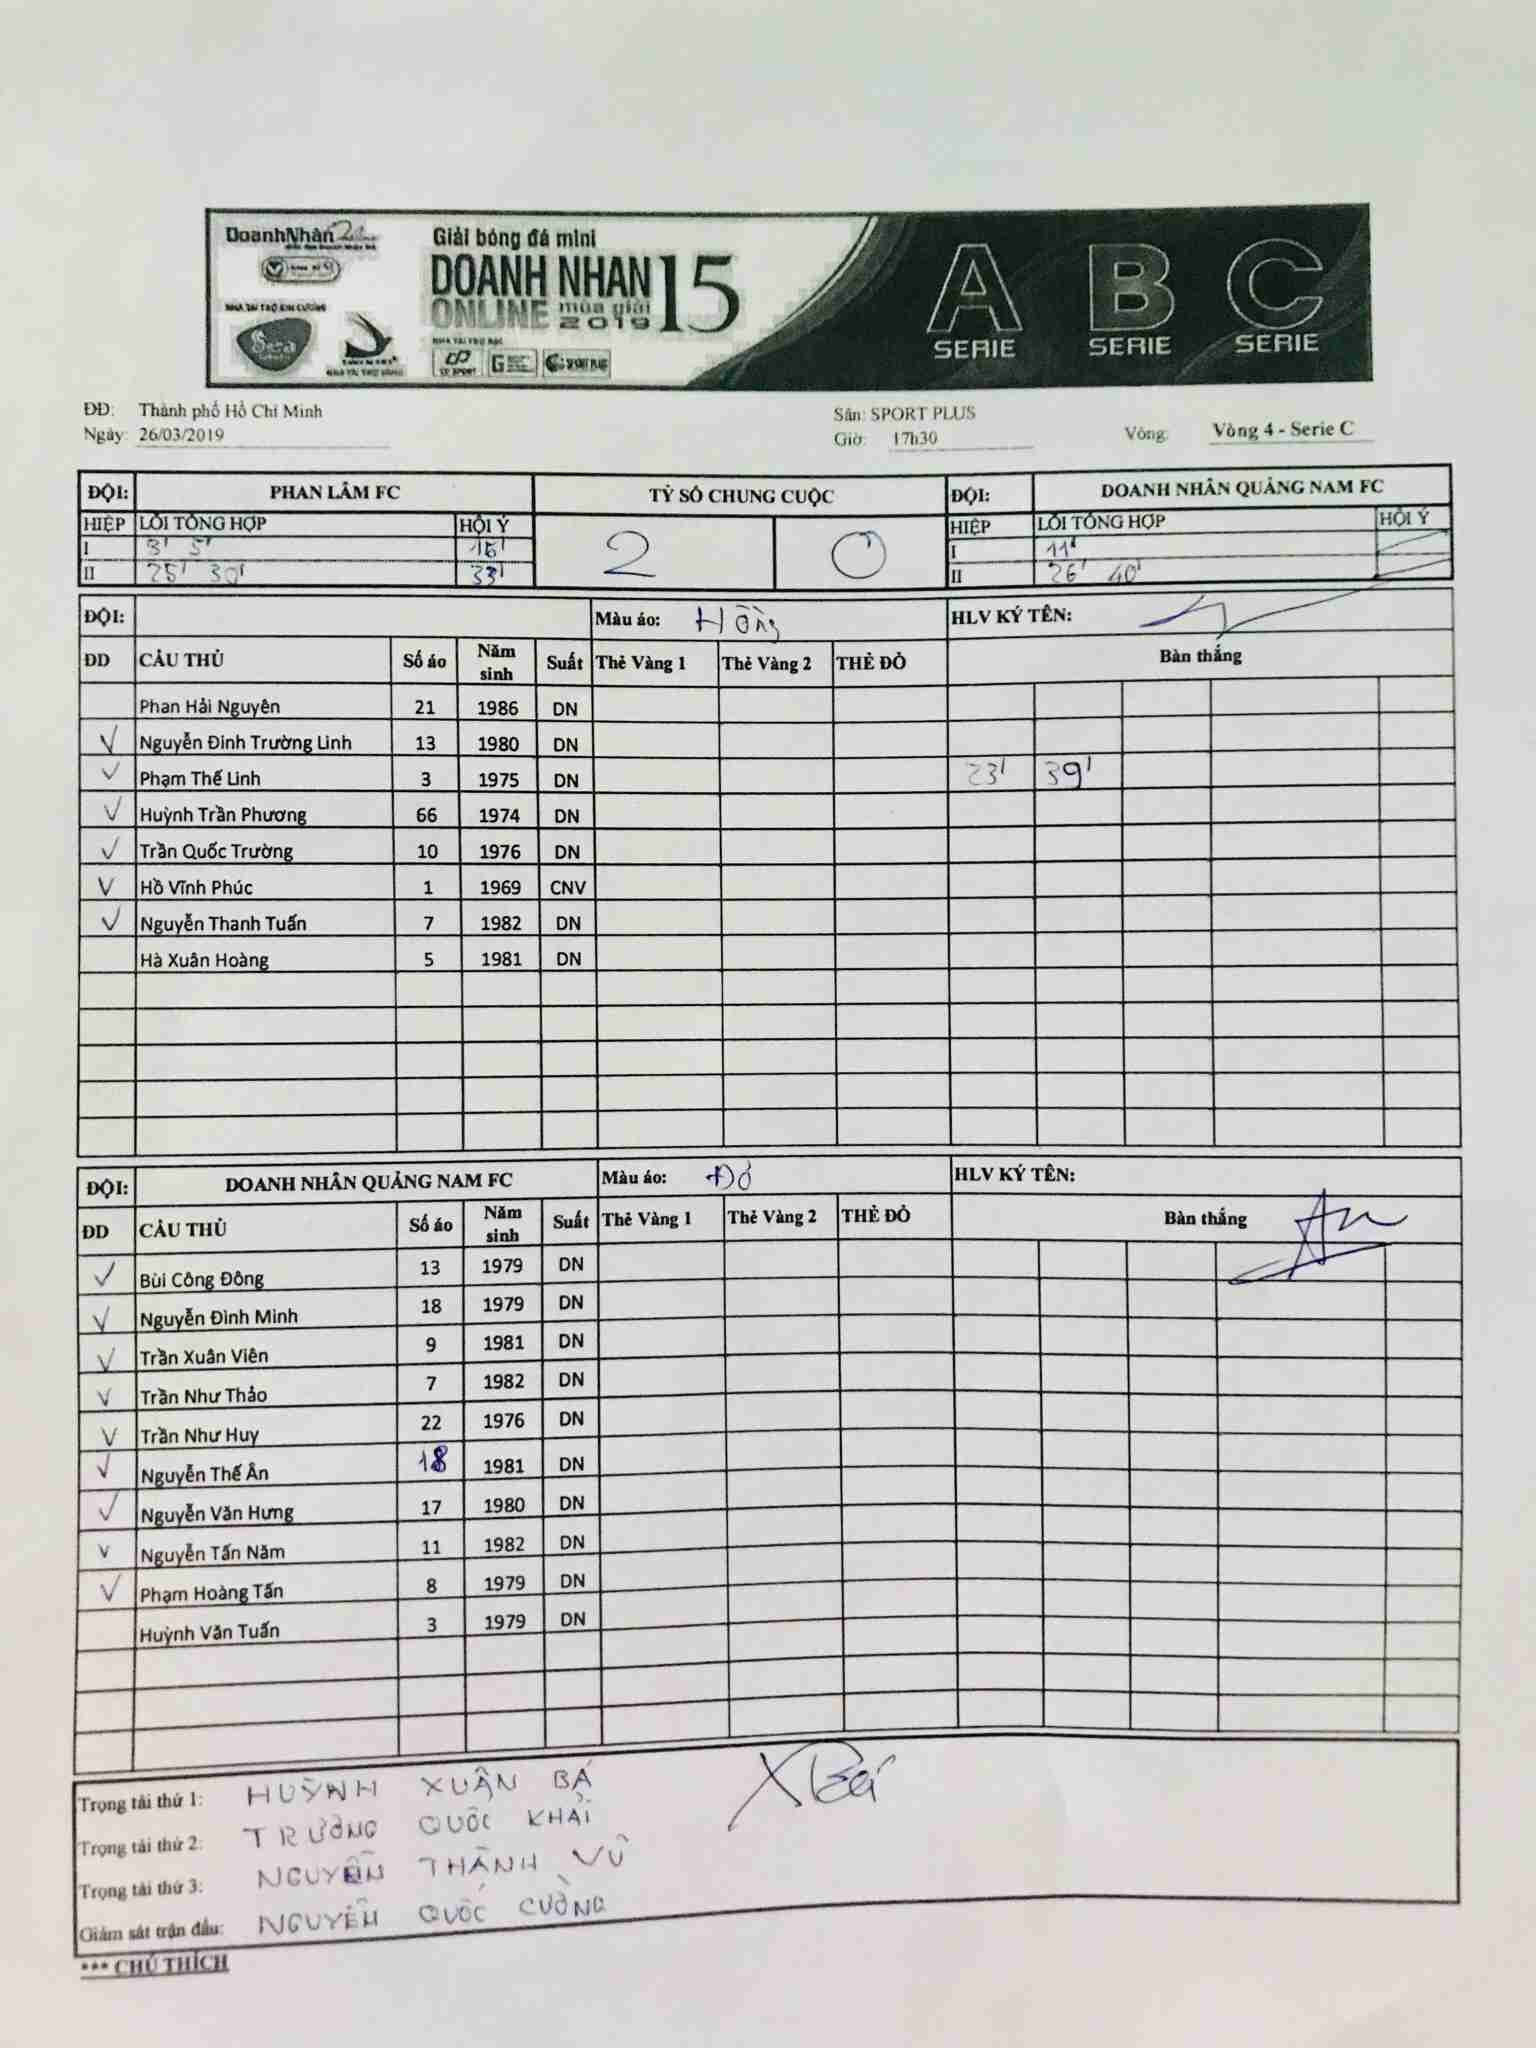 DoanhNhân Online
Giải bóng đá mini
DOANH NHAN 15
ONLINE mùa giải
2019
NHÀ TÀI TRỢ KIM CƯƠNG
NHÀ TÀI TRỢ BẠC
SPORT PLUS
NHÀ TÀI TRỢ VÀNG
A SERIE
B SERIE
C SERIE
ĐĐ: Thành phố Hồ Chí Minh Sân: SPORT PLUS
Ngày: 26/03/2019 Giờ: 17h30 Vòng: Vòng 4 - Serie C
ĐỘI: PHAN LÂM FC TỶ SỐ CHUNG CUỘC ĐỘI: DOANH NHÂN QUẢNG NAM FC
HIỆP LỖI TỔNG HỢP HỘI Ý 2 0 HIỆP LỖI TỔNG HỢP HỘI Ý
I 3' 5' 15' I 11'
II 25' 30' 33' II 26' 40'
ĐỘI: Màu áo: Hồng HLV KÝ TÊN:
ĐD CẦU THỦ Số áo Năm sinh Suất Thẻ Vàng 1 Thẻ Vàng 2 THẺ ĐỎ Bàn thắng
Phan Hải Nguyên 21 1986 DN
V Nguyễn Đinh Trường Linh 13 1980 DN
V Phạm Thế Linh 3 1975 DN 23' 39'
V Huỳnh Trần Phương 66 1974 DN
V Trần Quốc Trường 10 1976 DN
V Hồ Vĩnh Phúc 1 1969 CNV
V Nguyễn Thanh Tuấn 7 1982 DN
Hà Xuân Hoàng 5 1981 DN
ĐỘI: DOANH NHÂN QUẢNG NAM FC Màu áo: Đỏ HLV KÝ TÊN:
ĐD CẦU THỦ Số áo Năm sinh Suất Thẻ Vàng 1 Thẻ Vàng 2 THẺ ĐỎ Bàn thắng
V Bùi Công Đông 13 1979 DN
V Nguyễn Đình Minh 18 1979 DN
V Trần Xuân Viên 9 1981 DN
V Trần Như Thảo 7 1982 DN
V Trần Như Huy 22 1976 DN
V Nguyễn Thế Ân 18 1981 DN
V Nguyễn Văn Hưng 17 1980 DN
V Nguyễn Tấn Năm 11 1982 DN
V Phạm Hoàng Tấn 8 1979 DN
Huỳnh Văn Tuấn 3 1979 DN
Trọng tài thứ 1: HUỲNH XUÂN BÁ
Trọng tài thứ 2: TRƯƠNG QUỐC KHẢI
Trọng tài thứ 3: NGUYỄN THÀNH VŨ
Giám sát trận đấu: NGUYỄN QUỐC CƯỜNG
*** CHÚ THÍCH